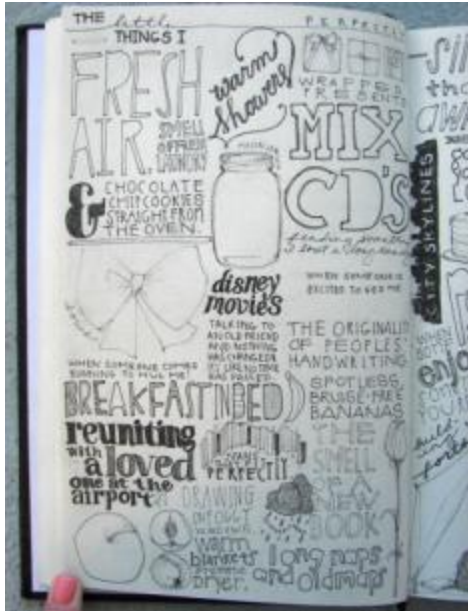 THE little
THINGS I
FRESH
AIR.
SMELL
OF FRESH
LAUNDRY
warm
showers
PERFECTLY
WRAPPED
PRESENTS
MIX
CD'S
&
CHOCOLATE
CHIP COOKIES
STRAIGHT FROM
THE OVEN.
finding
I lost a long
disney
movies
WHEN SOMEONE IS
EXCITED TO SEE ME
TALKING TO
AN OLD FRIEND
AND NOTHING
HAS CHANGED
THE ORIGINALI
OF PEOPLES'
HANDWRITING
WHEN SOMEONE COMES
RUNNING TO HUG ME
BREAKFAST IN BED
SPOTLESS,
BRUISE-FREE
BANANAS
reuniting
with a loved
one at the
airport
JEANS
THAT FIT
PERFECTLY
THE
SMELL
OF A
NEW
BOOK
DRAWING
ON FOGGY
WINDOWS
warm
blankets
dryer.
long naps
and old maps
CITY SKYLINES